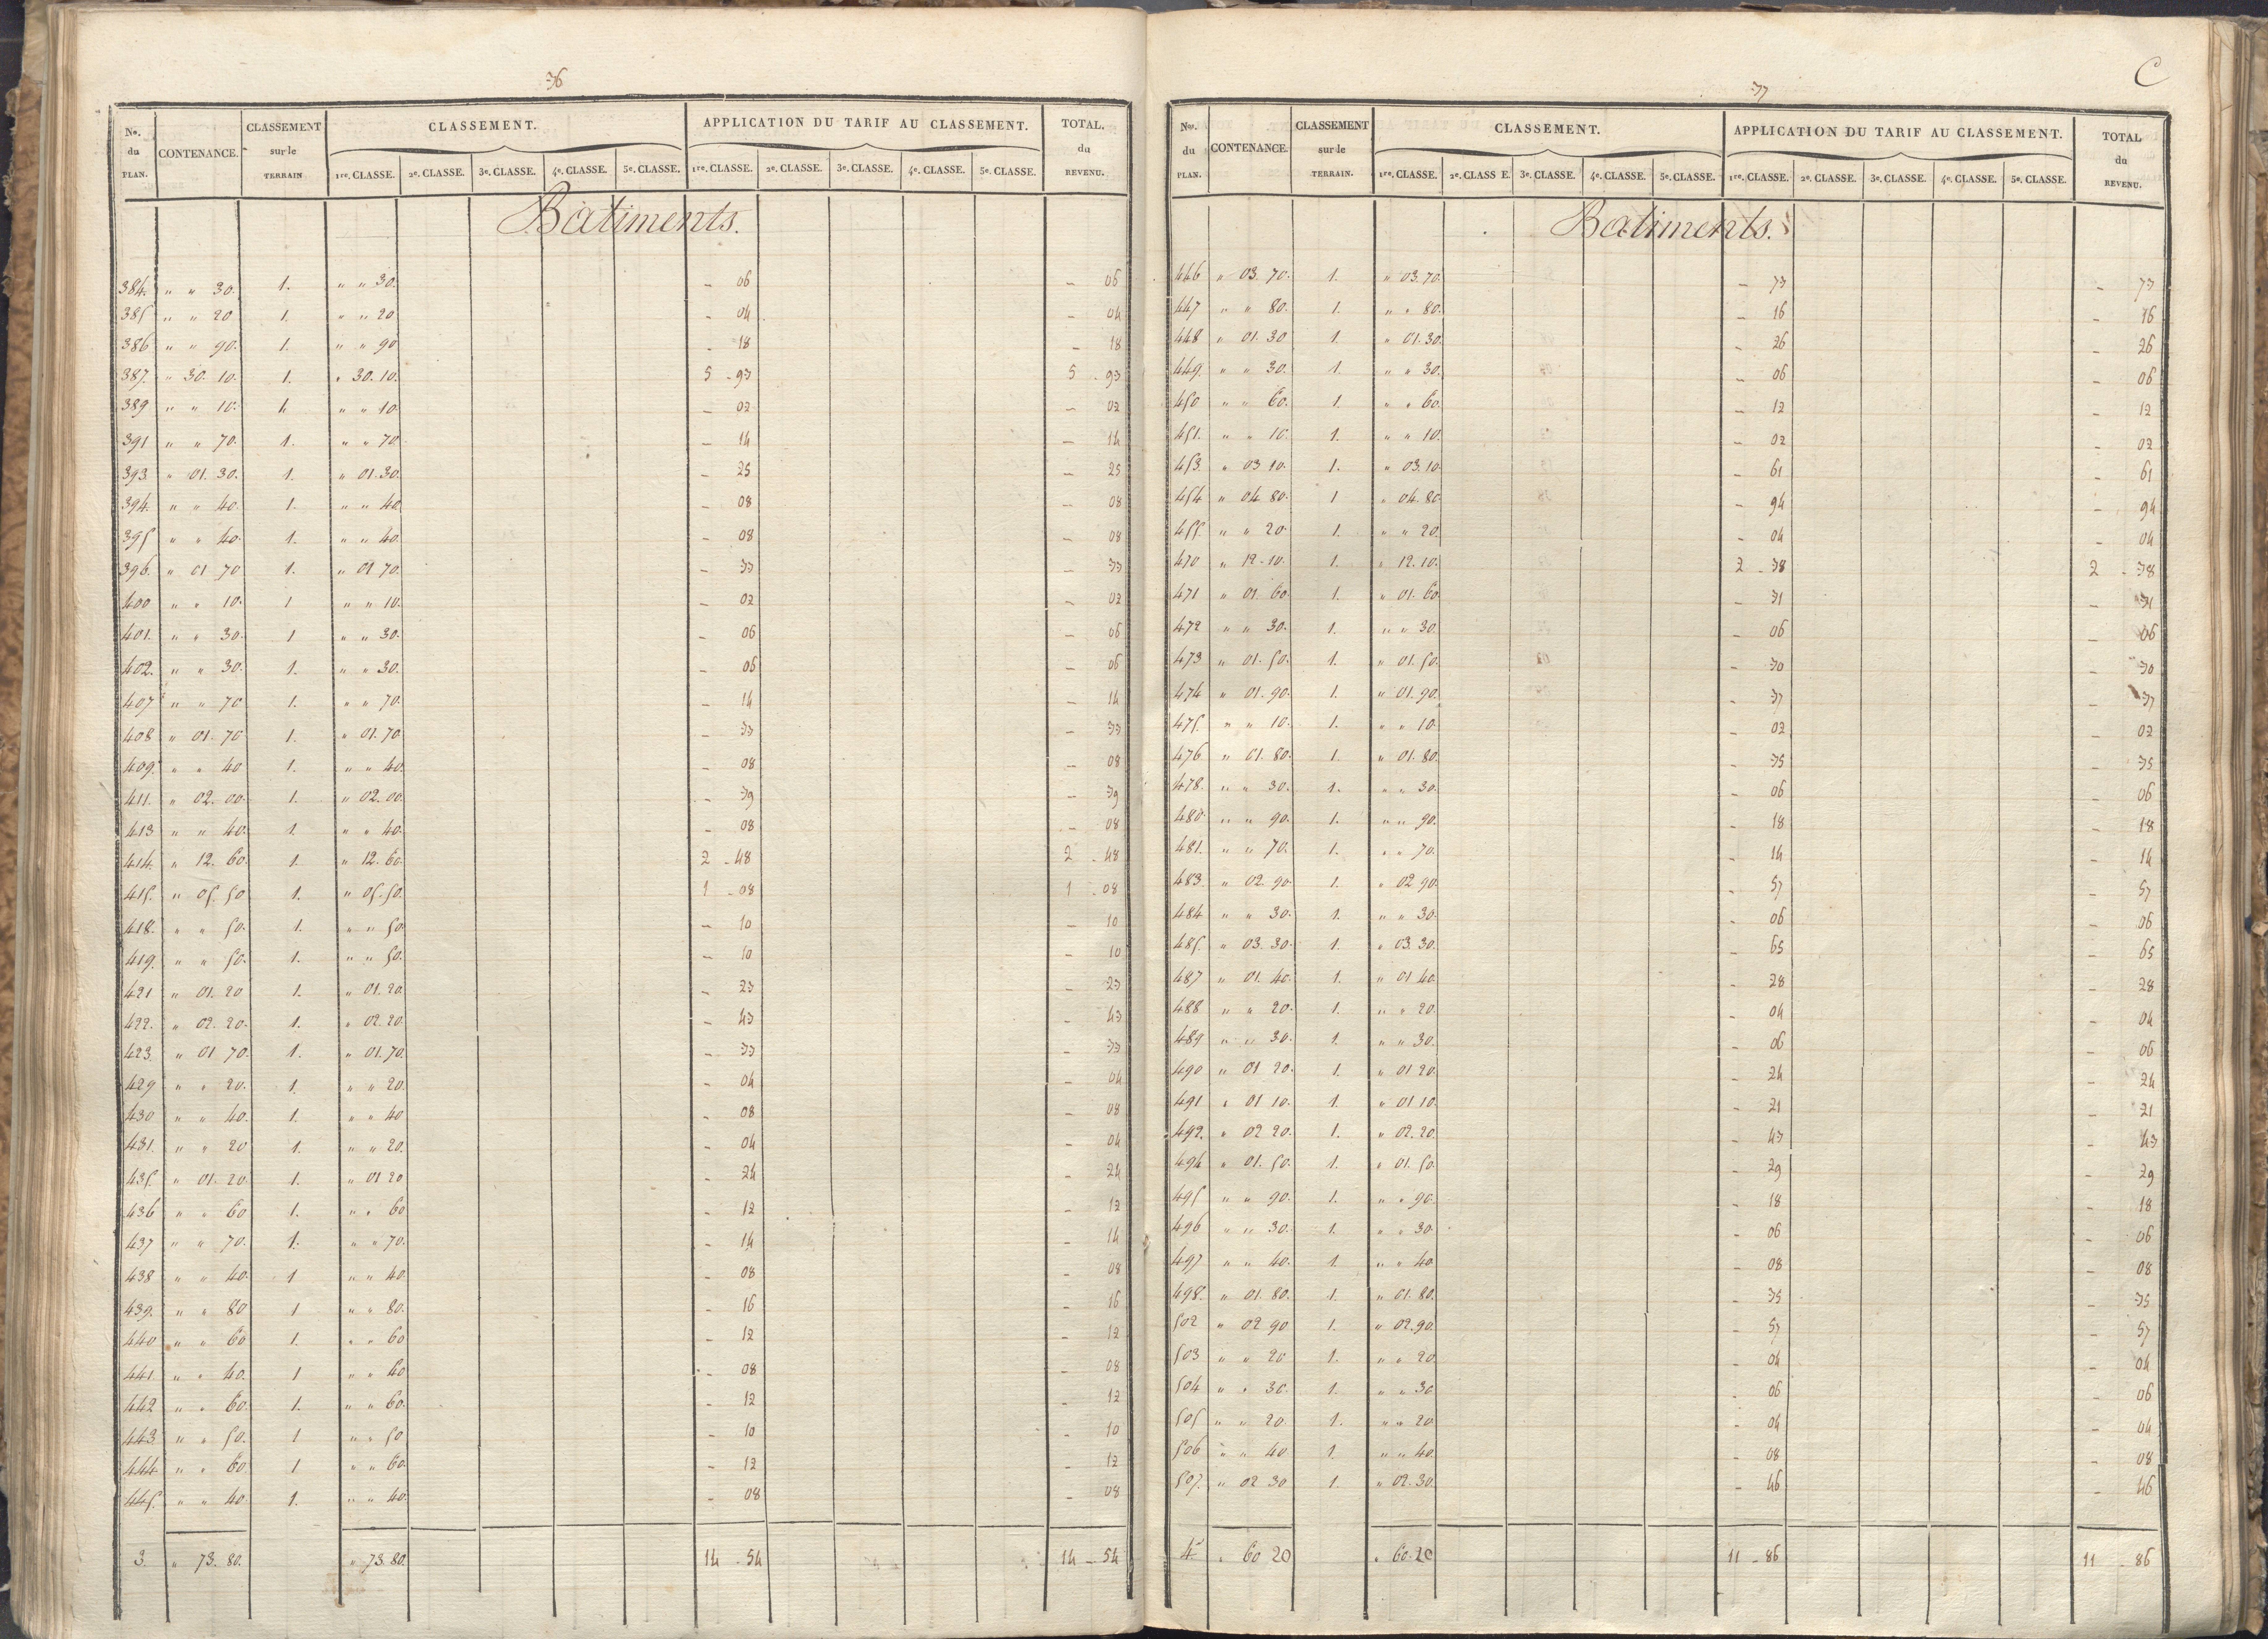 36
No. du PLAN. CONTENANCE. CLASSEMENT sur le TERRAIN CLASSEMENT. APPLICATION DU TARIF AU CLASSEMENT. TOTAL. du REVENU.
1re. CLASSE. 2e. CLASSE. 3e. CLASSE. 4e. CLASSE. 5e. CLASSE. 1re. CLASSE. 2e. CLASSE. 3e. CLASSE. 4e. CLASSE. 5e. CLASSE.
Batiments.
384. " " 30. 1. " " 30. - 06 - 06
385 " " 20 1. " " 20 - 04 - 04
386 " " 90. 1. " " 90 - 18 - 18
387. " 30. 10. 1. " 30. 10. 5 - 93 5 - 93
389 " " 10. 1. " " 10. - 02 - 02
391 " " 70. 1. " " 70 - 14 - 14
393. " 01. 30. 1. " 01. 30. - 25 - 25
394. " " 40. 1. " " 40. - 08 - 08
395 " " 40. 1. " " 40. - 08 - 08
396. " 01 70 1. " 01 70. - 33 - 33
400 " " 10. 1 " " 10. - 02 - 02
401. " " 30. 1 " " 30. - 06 - 06
402. " " 30. 1. " " 30. - 06 - 06
407 " " 70 1. " " 70. - 14 - 14
408 " 01. 70 1. " 01. 70. - 33 - 33
409. " " 40 1. " " 40. - 08 - 08
411. " 02. 00. 1. " 02. 00. - 39 - 39
413 " " 40. 1. " " 40. - 08 - 08
414. " 12. 60. 1. " 12. 60. 2 - 48 2 - 48
415. " 05. 50 1. " 05. 50. 1 - 08 1 - 08
418. " " 50. 1. " " 50. - 10 - 10
419. " " 50. 1. " " 50. - 10 - 10
421 " 01. 20 1. " 01. 20. - 23 - 23
422. " 02. 20. 1. " 02. 20. - 43 - 43
423. " 01 70. 1. " 01. 70. - 33 - 33
429 " " 20. 1. " " 20. - 04 - 04
430 " " 40. 1. " " 40 - 08 - 08
431. " " 20 1. " " 20. - 04 - 04
435. " 01. 20. 1. " 01 20 - 24 - 24
436 " " 60 1. " " 60 - 12 - 12
437 " " 70. 1. " " 70. - 14 - 14
438 " " 40. 1 " " 40. - 08 - 08
439. " " 80 1 " " 80. - 16 - 16
440 " " 60 1. " " 60 - 12 - 12
441. " " 40. 1 " " 40 - 08 - 08
442 " " 60. 1. " " 60. - 12 - 12
443 " " 50. 1 " " 50 - 10 - 10
444 " " 60. 1 " " 60. - 12 - 12
445. " " 40 1. " " 40. - 08 - 08
3. " 73. 80. " 73. 80. 14 - 54 14 - 54
37
C
Nos. du PLAN. CONTENANCE. CLASSEMENT sur le TERRAIN. CLASSEMENT. APPLICATION DU TARIF AU CLASSEMENT. TOTAL du REVENU.
1re. CLASSE. 2e. CLASS E. 3e. CLASSE. 4e. CLASSE. 5e. CLASSE. 1re. CLASSE. 2e. CLASSE. 3e. CLASSE. 4e. CLASSE. 5e. CLASSE.
Batiments.
446 " 03. 70. 1. " 03. 70. - 73 - 73
447 " " 80. 1. " " 80. - 16 - 16
448 " 01. 30 1. " 01. 30. - 26 - 26
449. " " 30. 1. " " 30. - 06 - 06
450 " " 60. 1. " " 60. - 12 - 12
451. " " 10. 1. " " 10. - 02 - 02
453. " 03 10. 1. " 03. 10. - 61 - 61
454 " 04. 80. 1 " 04. 80. - 94 - 94
455. " " 20. 1. " " 20. - 04 - 04
470 " 12. 10. 1. " 12. 10. 2 - 38 2 - 38
471 " 01. 60. 1. " 01. 60. - 31 - 31
472 " " 30. 1. " " 30. - 06 - 06
473 " 01. 50. 1. " 01. 50. - 30 - 30
474 " 01. 90. 1. " 01. 90. - 37 - 37
475. " " 10. 1. " " 10. - 02 - 02
476 " 01. 80. 1. " 01. 80. - 35 - 35
478. " " 30. 1. " " 30. - 06 - 06
480 " " 90. 1. " " 90. - 18 - 18
481. " " 70. 1. " " 70. - 14 - 14
483. " 02. 90. 1. " 02 90. - 57 - 57
484 " " 30. 1. " " 30. - 06 - 06
485. " 03. 30. 1. " 03. 30. - 65 - 65
487 " 01. 40. 1. " 01 40. - 28 - 28
488 " " 20. 1. " " 20. - 04 - 04
489 " " 30. 1. " " 30. - 06 - 06
490 " 01 20. 1. " 01 20. - 24 - 24
491 " 01 10. 1. " 01 10. - 21 - 21
492. " 02 20. 1. " 02. 20. - 43 - 43
494 " 01. 50. 1. " 01. 50. - 29 - 29
495 " " 90. 1. " " 90. - 18 - 18
496 " " 30. 1. " " 30. - 06 - 06
497 " " 40. 1. " " 40. - 08 - 08
498. " 01. 80. 1. " 01. 80. - 35 - 35
502 " 02 90 1. " 02. 90. - 57 - 57
503 " " 20 1. " " 20. - 04 - 04
504 " " 30. 1. " " 30 - 06 - 06
505 " " 20. 1. " " 20. - 04 - 04
506 " " 40 1. " " 40. - 08 - 08
507. " 02 30 1. " 02. 30. - 46 - 46
4 " 60 20 " 60. 20 11 - 86 11 - 86